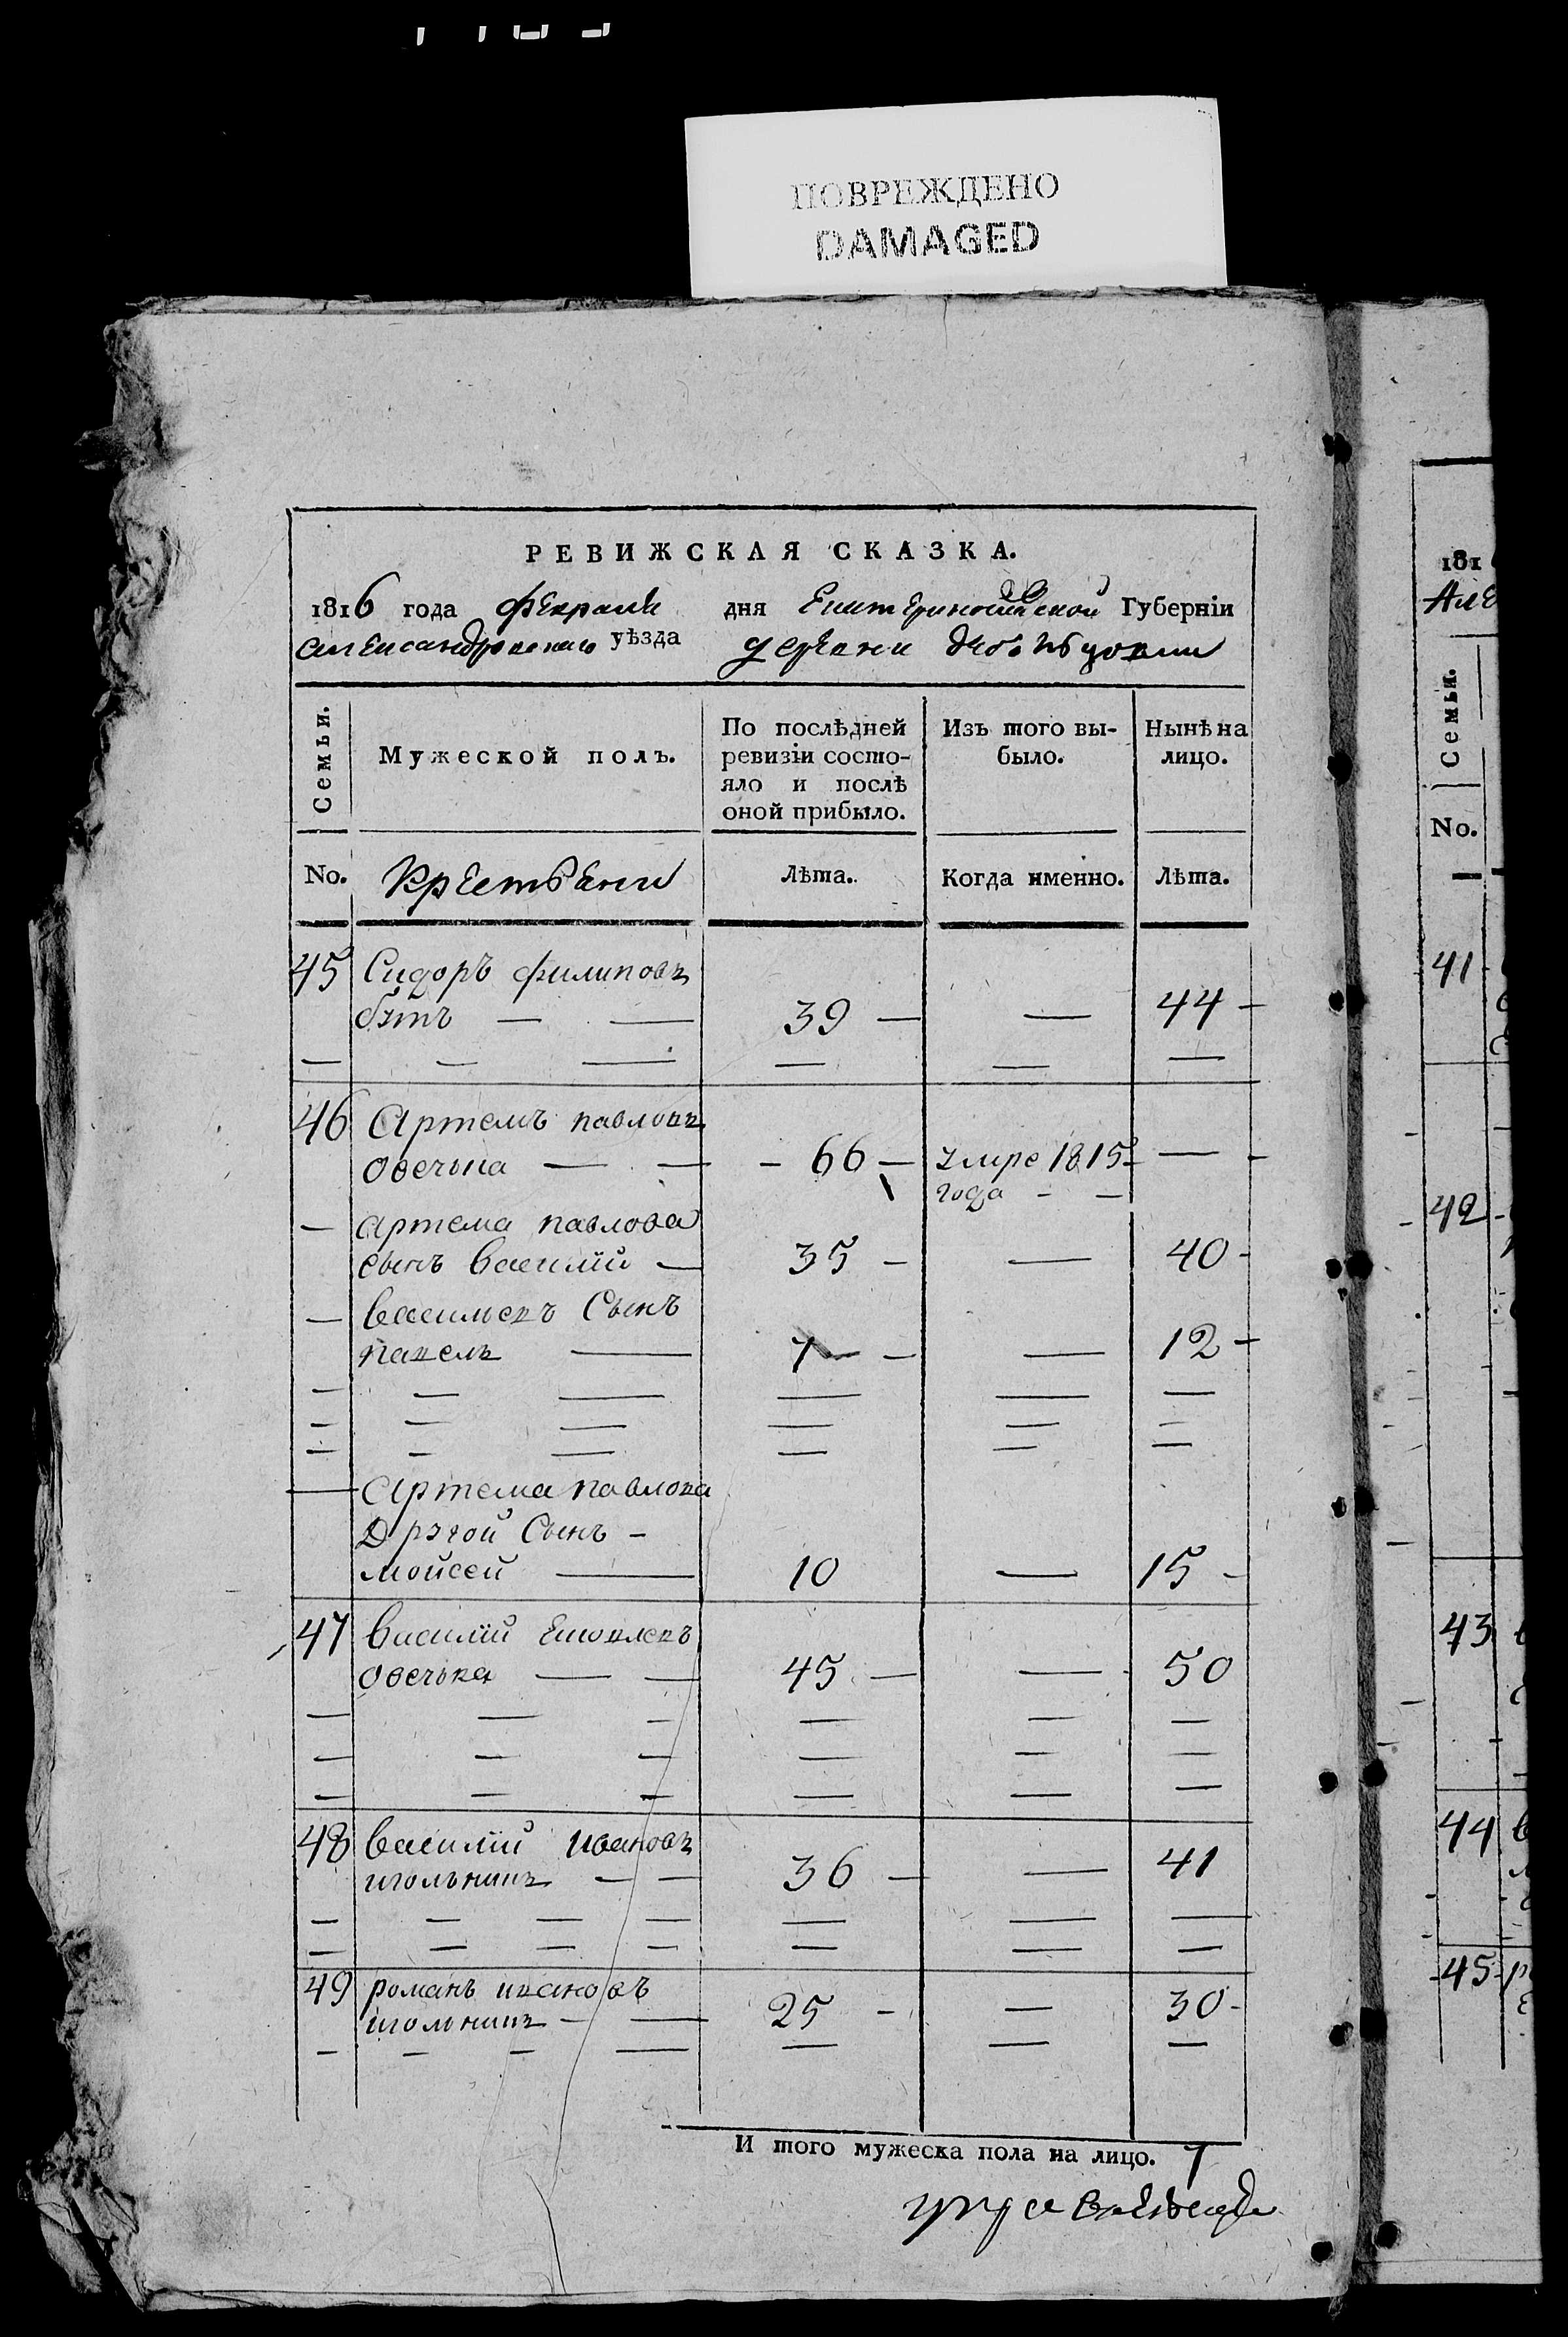 ПОВРЕЖДЕНО
DAMAGED
РЕВИЖСКАЯ СКАЗКА.
1816 года февраля дня Екатеринославской Губерніи
александровскаго уѣзда деревни
Семьи.
Мужеской полъ.
По послѣдней ревизіи состо-
яло и послѣ
оной прибыло.
Изъ того вы-
было.
Нынѣ на
лицо.
No. Крестьяни Лѣта. Когда именно. Лѣта.
45 Сидоръ филиповъ
— — 39 — — 44 —
— — — — — —
46 Артемъ павловъ
овечька — — — 66 — умре 1815 — —
года — —
— артема павлова
сынъ василий — 35 — — 40 -
— васильевъ Сынъ
павелъ — 7 — — 12 -
— — — — — —
— — — — — —
— — — — — —
— Артема павлова
Другой Сынъ -
мойсей — 10 — 15 -
47 василий яковлевъ
овечька — — 45 — — 50
— — — — — —
— — — — — —
— — — — — —
48 василий ивановъ
игольникъ — — 36 — — 41
— — — — — — —
— — — — — — —
49 романъ ивановъ
игольникъ — — 25 - — 30 -
— — — — — — —
И того мужеска пола на лицо. 7
181
Але
Семьи.
No.
41
42
43
44
45